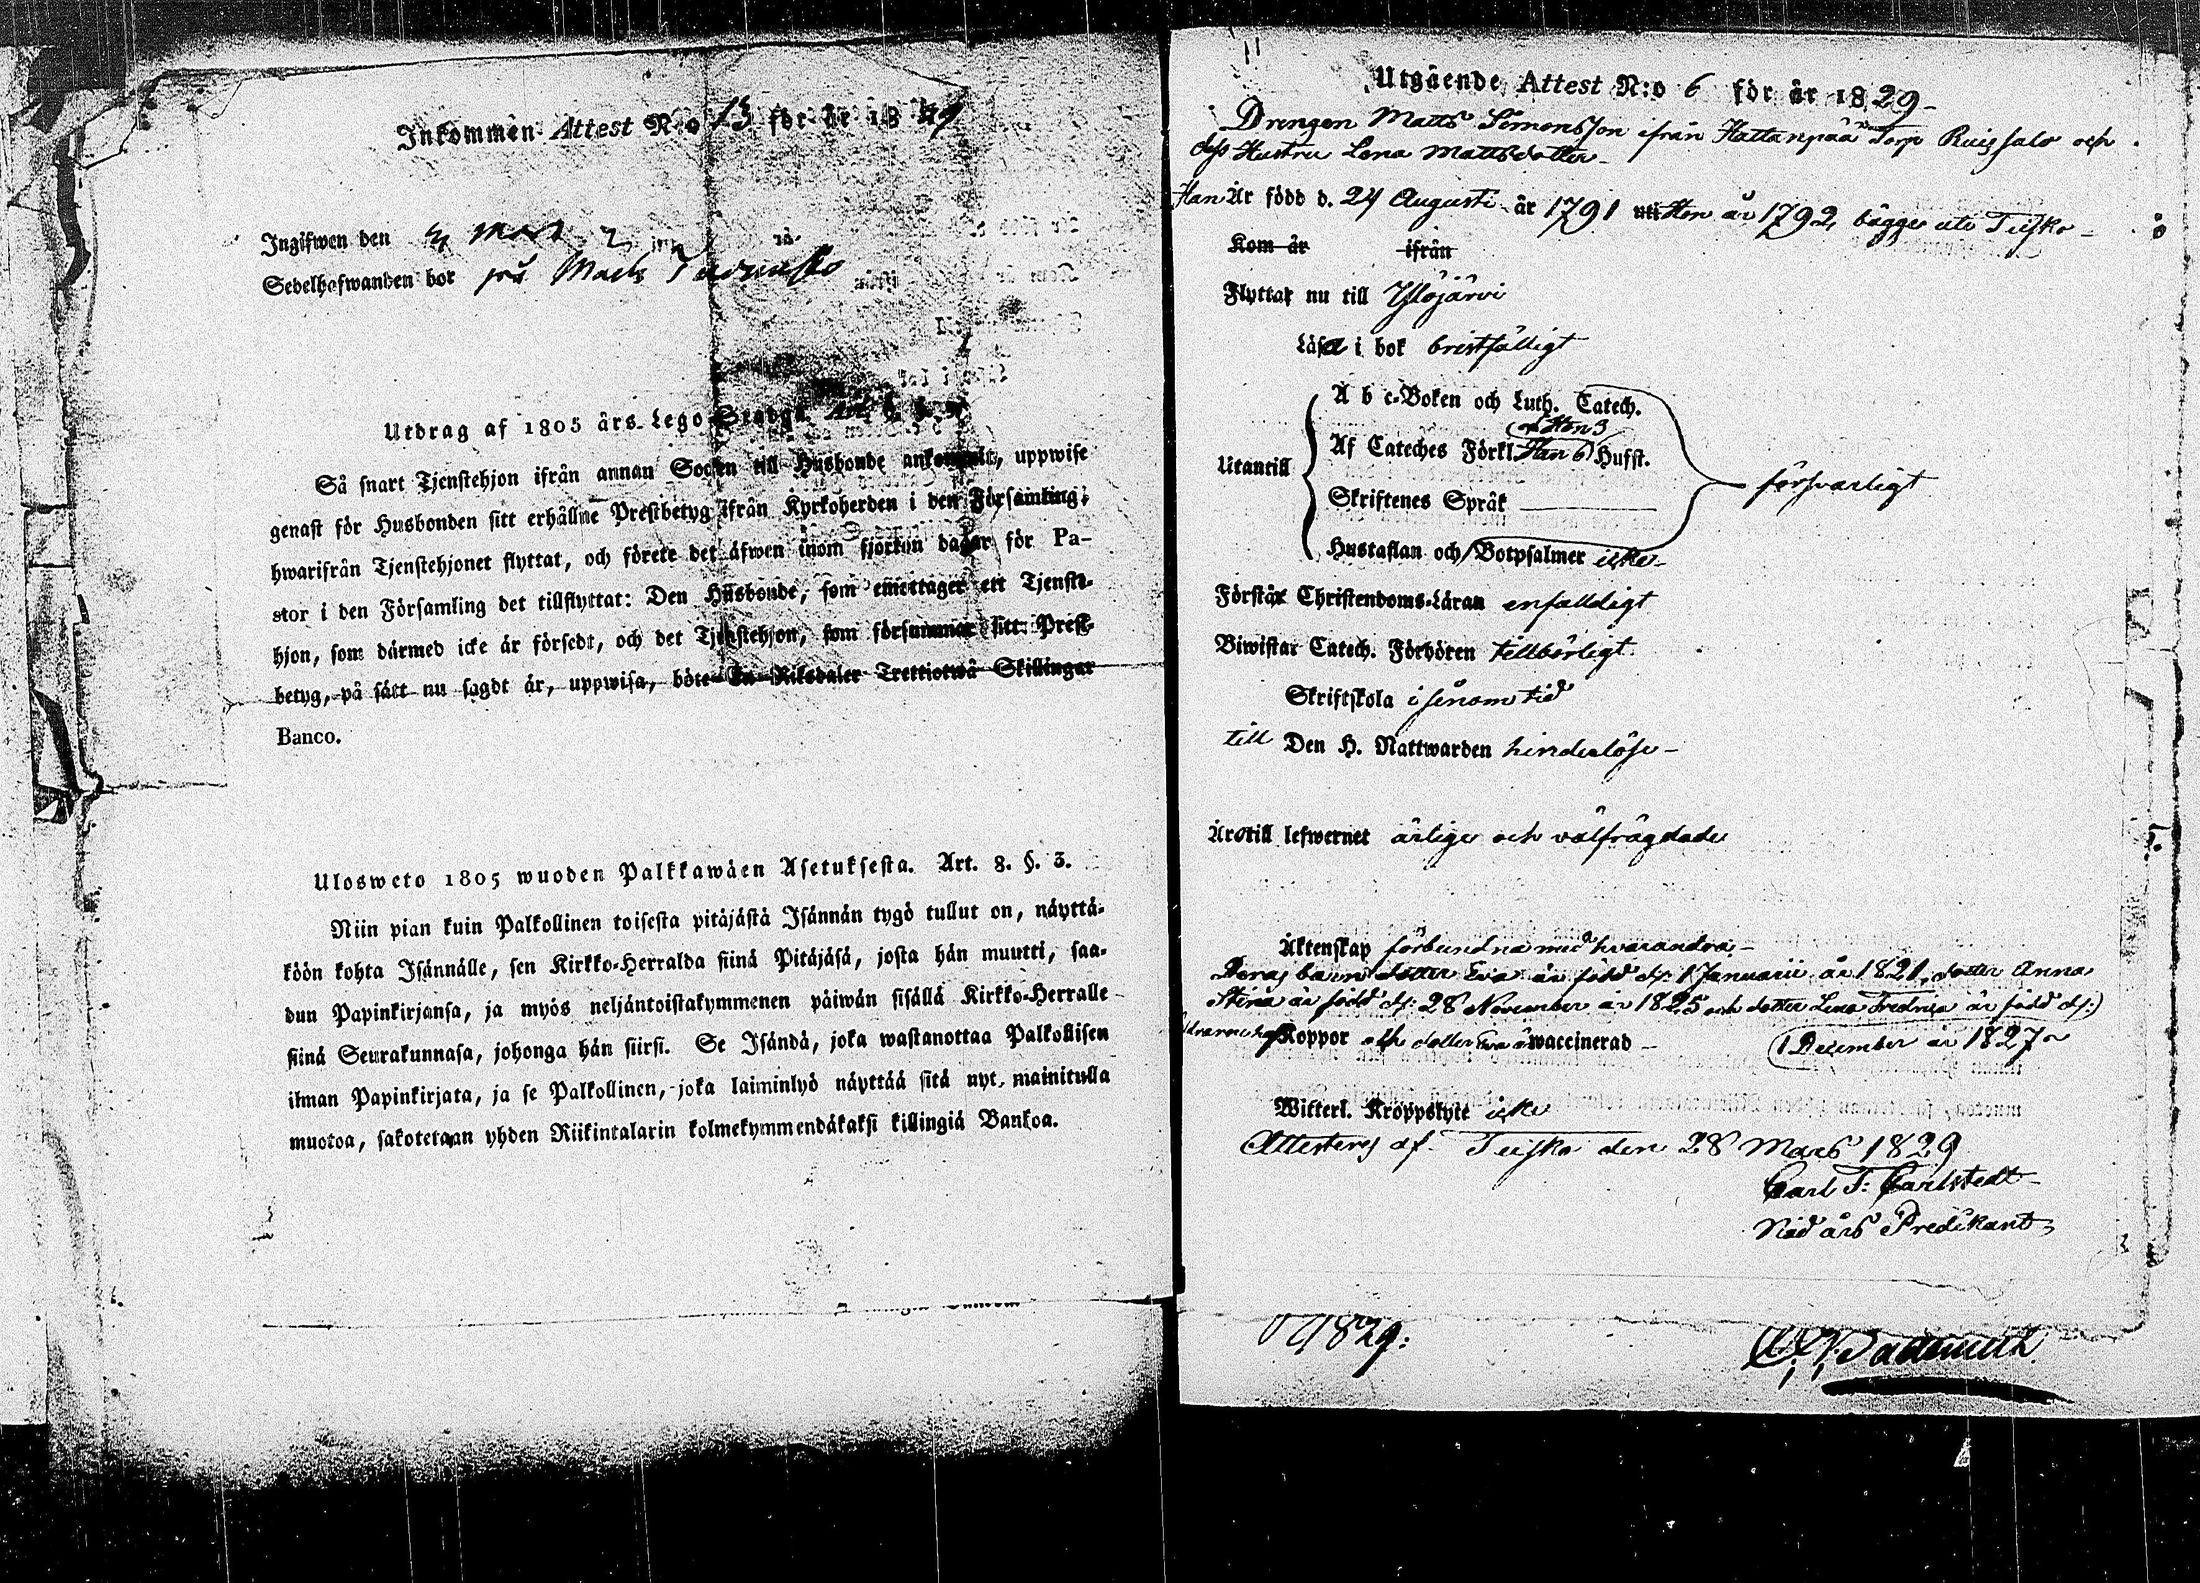 Inkommen Attest N:o 13 för år 1829
Ingifwen den
Sedelhafwanden bor
Utdrag af 1805 års Lego-Stadga.
Så snart Tjenstehjon ifrån annan Socken till Husbonde ankommit, uppwise
genast för Husbonden sitt erhållne Prestbetyg ifrån Kyrkoherden i den Församling,
hwarifrån Tjenstehjonet flyttat, och förete det äfwen inom fjorton dagar för Pa-
stor i den Församling det tillflyttat: Den Husbonde, som emottager ett Tjenste-
hjon, som därmed icke är försedt, och det Tjenstehjon, som försummar sitt Prest-
betyg, på sätt nu sagdt är, uppwisa, böte En Riksdaler Trettiotwå Skillingar
Banco.
Ulosweto 1805 wuoden Palkkawäen Asetuksesta. Art. 8. §. 3.
Niin pian kuin Palkollinen toisesta pitäjästä Isännän tygö tullut on, näyttä-
köön kohta Isännälle, sen Kirkko-Herralda siinä Pitäjäsä, josta hän muutti, saa-
dun Papinkirjansa, ja myös neljäntoistakymmenen päiwän sisällä Kirkko-Herralle
siinä Seurakunnasa, johonga hän siirsi. Se Isändä, joka wastanottaa Palkollisen
ilman Papinkirjata, ja se Palkollinen, joka laiminlyö näyttää sitä nyt mainitulla
muotoa, sakotetaan yhden Riikintalarin kolmekymmendäkaksi killingiä Bankoa.
Utgående Attest N:o 6 för år 1829
Drengen Matts Simonsson ifrån Hattanpää Torp Ruissalo och
dess Hustru Lena Mattsdotter
Han Är född d. 24 Augusti år 1791 Hon år 1792, bägge uti Teisko
Kom år ifrån
Flyttar nu till Ylöjärvi
Läsa i bok bristfälligt
A b c-Boken och Luth. Catech.
och Hon 3
Utantill Af Cateches Förkl. Han 6 Husst.
Skriftenes Språk försvarligt
Hustaflan och Botpsalmer icke
Förstår Christendoms-Läran enfaldigt
Biwistar Catech. Förhören tillbörligt
Skriftskola i sinom tid
till Den H. Nattwarden hinderlöse
Äro till lefwernet ärlige och välfrägdade
Äktenskap förbundna med hvarandra
Deras barn dotter Eva är född d: 1 Januarii år 1821, dotter Anna
Stina är född d: 28 November år 1825 och dotter Lena Fredrica är född d:
1 December år 1827
Koppor och dotter Eva är waccinerad
Witterl. Kroppslyte icke
Attesteras af Teisko den 28 Mars 1829
Carl F: Carlstedt
Nåd års Predikant
1829: